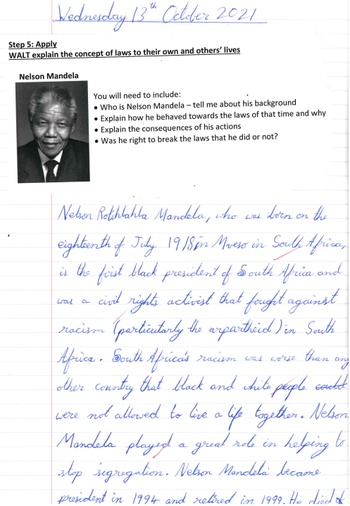 Wednesday 13th October 2021
Step 5: Apply
WALT explain the concept of laws to their own and others' lives
Nelson Mandela
You will need to include:
• Who is Nelson Mandela – tell me about his background
• Explain how he behaved towards the laws of that time and why
• Explain the consequences of his actions
• Was he right to break the laws that he did or not?
Nelson Rolihlahla Mandela, who was born on the
eighteenth of July 1918 in Mvezo in South Africa,
is the first black president of South Africa and
was a civil rights activist that fought against
racism (particularly the arpartheid) in South
Africa. South Africa's racism was worse than any
other country that black and white people
were not allowed to live a life together. Nelson
Mandela played a great role in helping to
stop segregation. Nelson Mandela became
president in 1994 and retired in 1999. He died